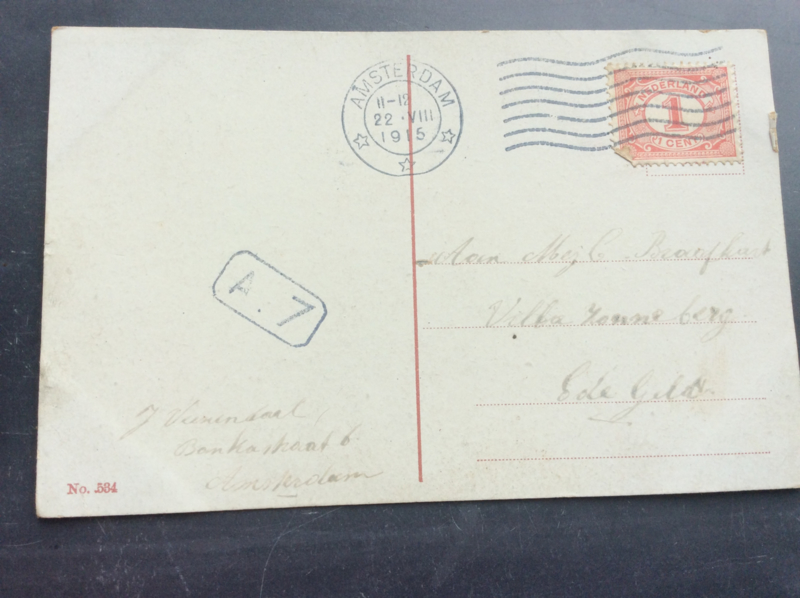 AMSTERDAM
11-12
22 · VIII
1915
NEDERLAND
1
1 CENT
A. 7
Aan Mej C. Braafhart
Villa Zonneberg
Ede Geld
J Veenendaal,
Bankastraat 6
Amsterdam
No. 534